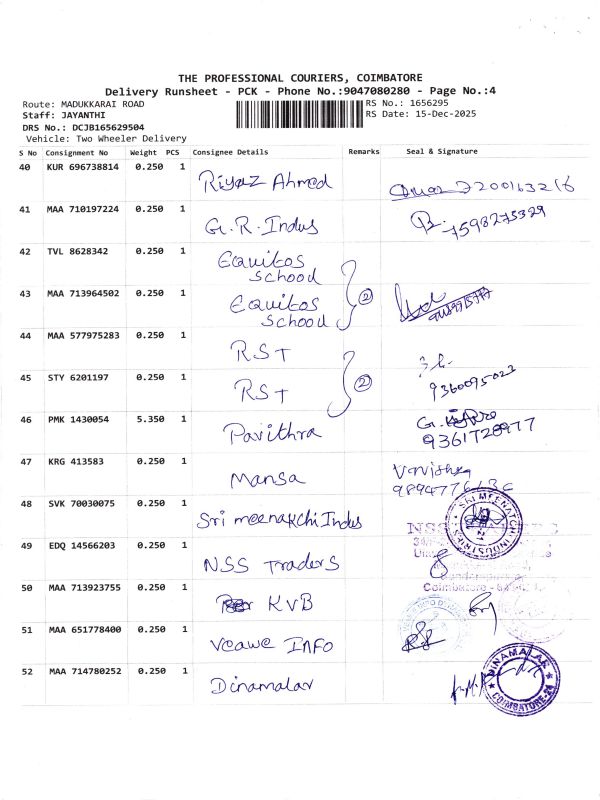 THE PROFESSIONAL COURIERS, COIMBATORE
Delivery Runsheet - PCK - Phone No.:9047080280 - Page No.:4
Route: MADUKKARAI ROAD RS No.: 1656295
Staff: JAYANTHI RS Date: 15-Dec-2025
DRS No.: DCJB165629504
Vehicle: Two Wheeler Delivery
S No Consignment No Weight PCS Consignee Details Remarks Seal & Signature
40 KUR 696738814 0.250 1 Riyaz Ahmed
41 MAA 710197224 0.250 1 G.R. Indus 7598275329
42 TVL 8628342 0.250 1 Equitos
School
43 MAA 713964502 0.250 1 Equitos 2
School
44 MAA 577975283 0.250 1 RST
45 STY 6201197 0.250 1 RST 2 9360095022
46 PMK 1430054 5.350 1 Pavithra 9361728977
47 KRG 413583 0.250 1 Mansa
48 SVK 70030075 0.250 1 Sri meenakchi Indus SRI MEENATCHI INDUSTRIES
49 EDQ 14566203 0.250 1 NSS Traders NSS
Coimbatore
50 MAA 713923755 0.250 1 KVB
51 MAA 651778400 0.250 1 Veawe INFO
52 MAA 714780252 0.250 1 Dinamalar DINAMALAR COIMBATORE